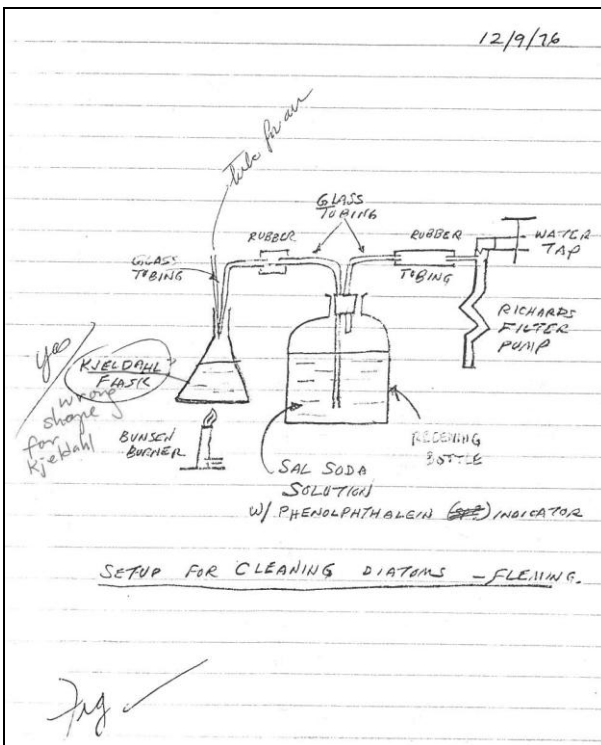 12/9/76
tube for air
GLASS
TUBING
RUBBER
RUBBER
TUBING
WATER
TAP
GLASS
TUBING
RICHARDS
FILTER
PUMP
yes
KJELDAHL ?
FLASK
wrong
shape
for
Kjeldahl
BUNSEN
BURNER
RECEIVING
BOTTLE
SAL SODA
SOLUTION
W/ PHENOLPHTHALEIN INDICATOR
SETUP FOR CLEANING DIATOMS – FLEMING.
Fig